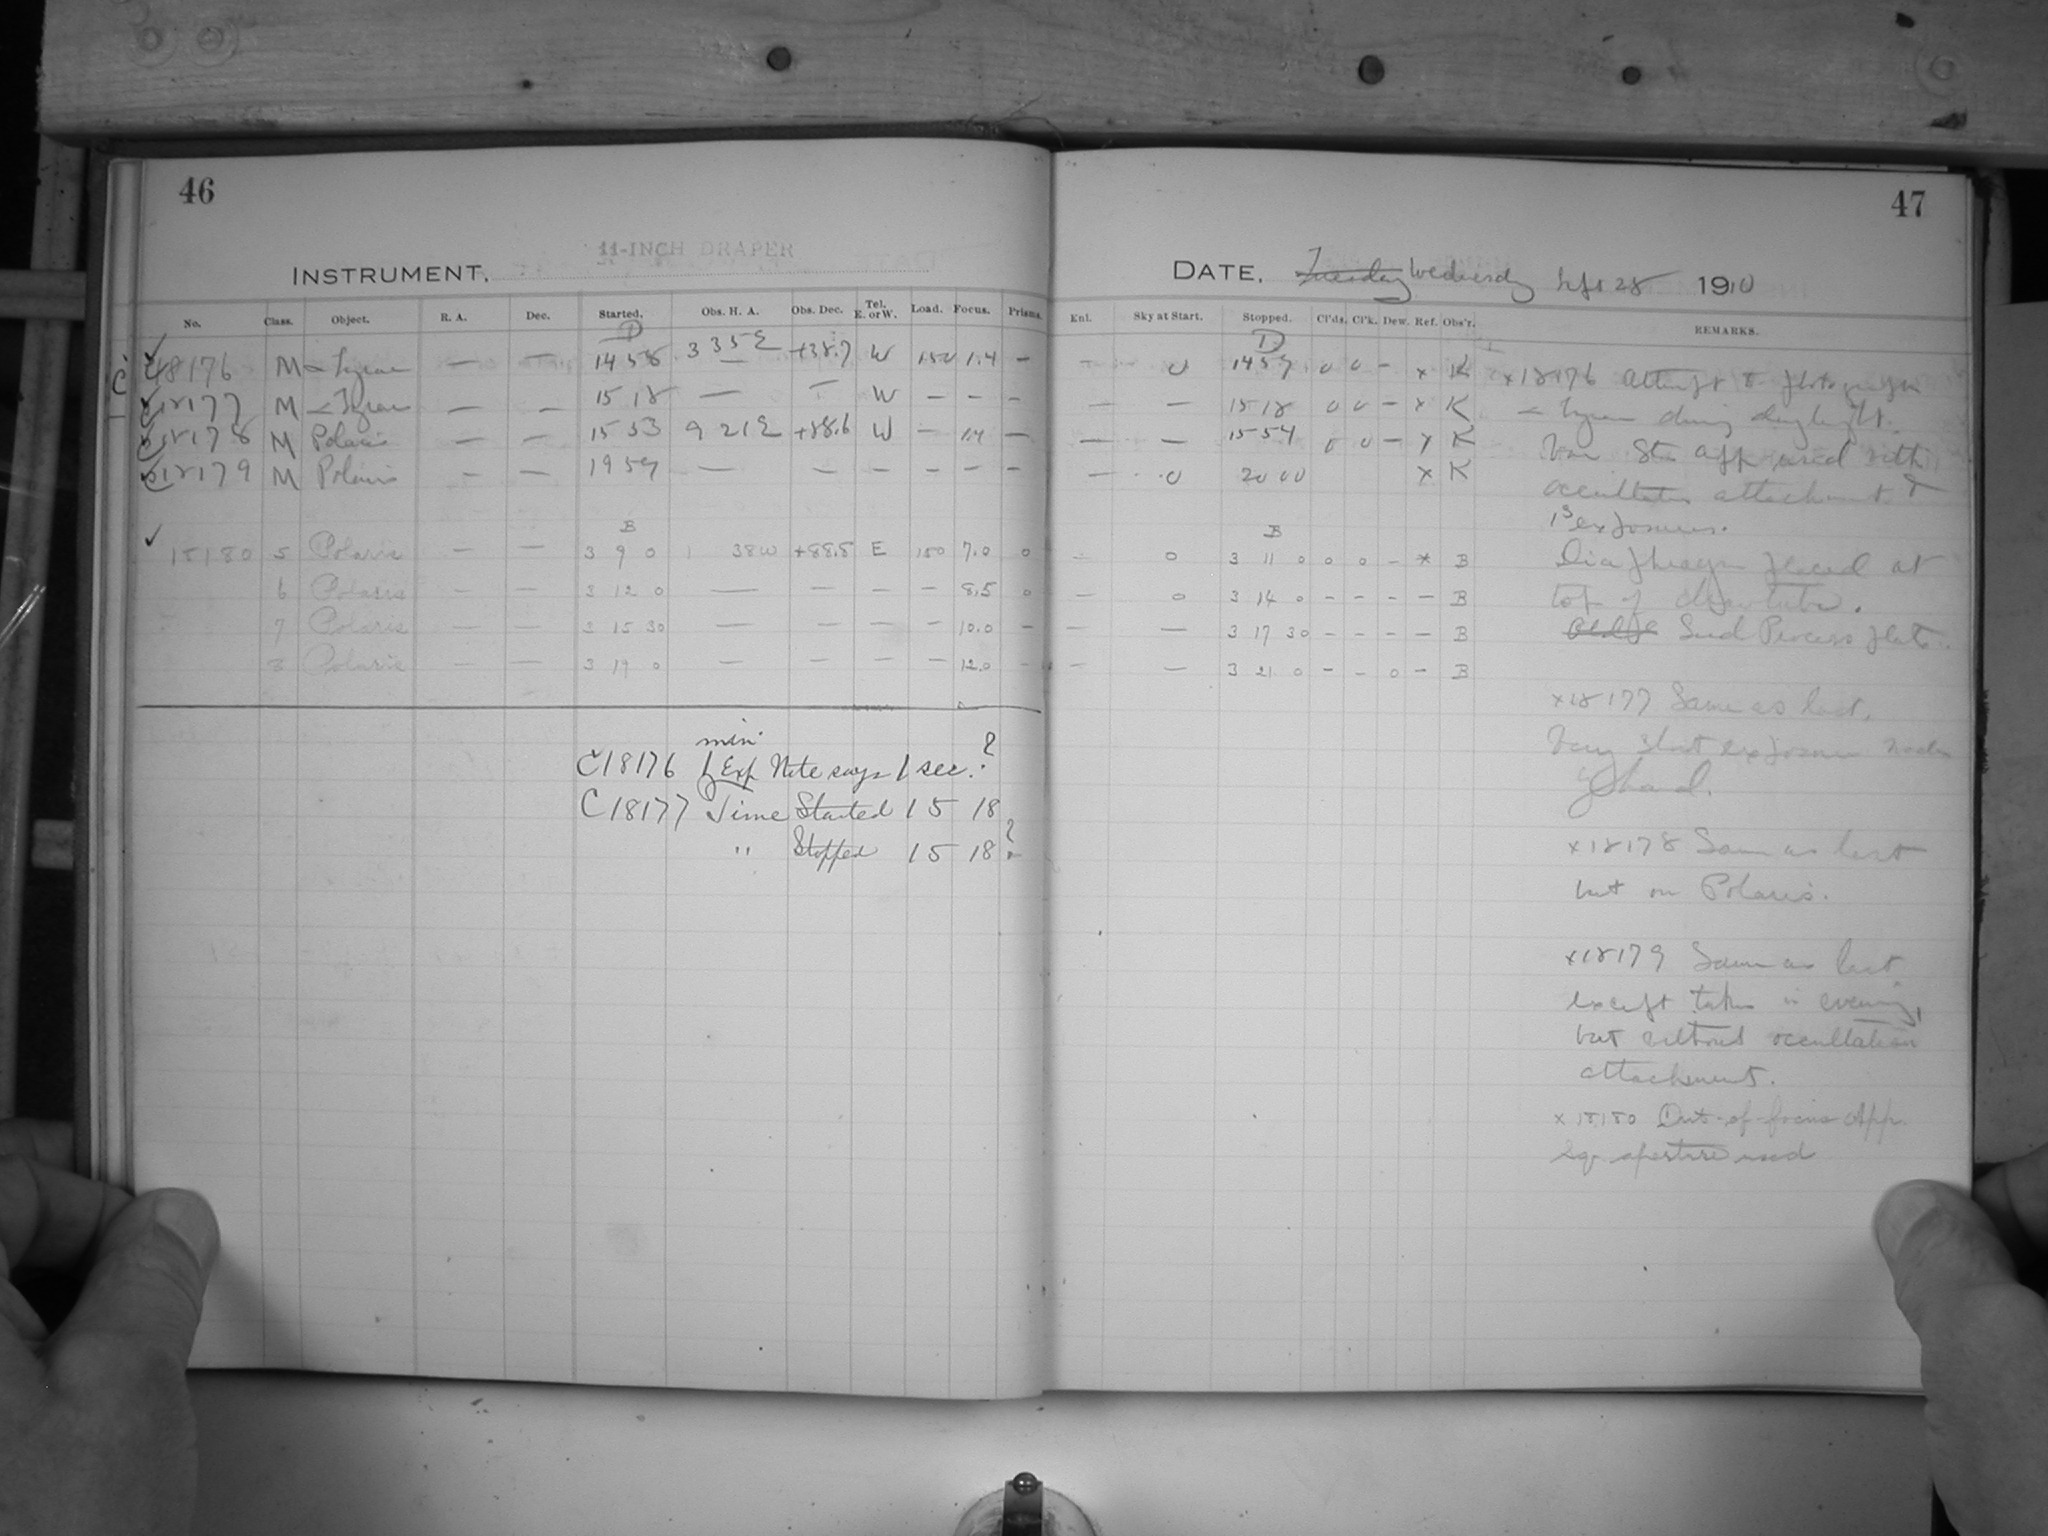 46
11-INCH DRAPER
INSTRUMENT.
No. Class. Object. R. A. Dec. Started. Obs. H. A. Obs. Dec. Tel. E. or W. Load. Focus. Prisms.
D
C 18176 M α Lyrae — — 14 58 3 35 E +38.7 W 150 1.4 —
C 18177 M α Lyrae — — 15 18 — — W — — —
C 18178 M Polaris — — 15 53 9 21 E +88.6 W — 1.4 —
C 18179 M Polaris — — 19 59 — — — — — —
B
18180 5 Polaris — — 3 9 0 1 38 W +88.5 E 150 7.0 0
6 Polaris — — 3 12 0 — — — — 8.5 0
7 Polaris — — 3 15 30 — — — — 10.0 —
8 Polaris — — 3 19 0 — — — — 12.0 —
min
C 18176 1 Exp Note says 1 sec. ?
C 18177 Time Started 15 18
" Stopped 15 18 ?
47
DATE. Tuesday Wednesday Sept 28 1910
Enl. Sky at Start. Stopped. Cl'ds. Cl'k. Dew. Ref. Obs'r. REMARKS.
D
— 0 14 59 0 0 — x K
— — 15 18 0 0 — x K
— — 15 54 0 0 — x K
— 0 20 00 x K
B
— 0 3 11 0 0 0 — * B
— 0 3 14 0 — — — — B
— — 3 17 30 — — — — B
— — 3 21 0 — — 0 — B
x18176 Attempt to photograph
α Lyrae during daylight.
Var. Sta. App used with
occultation attachment &
1s exposures.
Diaphragm placed at
top of draw tube.
Seed Process plate.
x18177 Same as last.
Very short exposure made
by hand.
x18178 Same as last
but on Polaris.
x18179 Same as last
except taken in evening,
but without occultation
attachment.
x18180 Out-of-focus App.
sq. aperture used